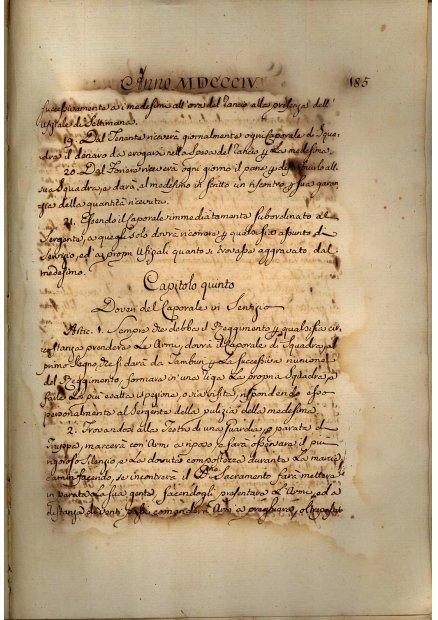 Anno MDCCCIV 185
successivamente a i medesimi all'ora del rancio alla presenza dell'
Ufiziale di Settimana.
19. Dal Tenente riceverà giornalmente ogni Caporale di Squa-
dra il denaro da erogarsi nella spesa del rancio p la medesima.
20. Dal Foriere riceverà ogni giorno il pane p distribuirlo alla
sua Squadra, e darà al medesimo in scritto un riscontro p sua garan-
zia della quantità ricevuta.
21. Essendo il Caporale immediatamente subordinato al
Sergente, a questi solo dovrà ricorrere p qualsisia assunto di
Servizio, ed a proprj Ufiziali quanto si trovasse aggravato dal
medesimo.
Capitolo quinto
Doveri del Caporale in Servizio
Artic. 1. Sempre che debba il Reggimento p qualsisia cir-
costanza prendere le Armi, dovrà il Caporale di Squadra, al
primo segno, che si darà da Tamburi p la successiva riunione
del Reggimento, formare in una riga la propria Squadra, e
farle la più esatta ispezione, o sia visita, rispondendo esso
personalmente al Sergente della pulizia della medesima.
2. Trovandosi alla testa di una Guardia, o parata di
Truppa, marcerà con Armi a riposo, e farà osservare il più
rigoroso silenzio, e la dovuta compostezza durante la marcia
Camin facendo, se incontrerà il SSmo Sacramento farà mettere
in parata la sua gente, facendogli presentare le Armi, ed a
distanza di venti passi comanderà